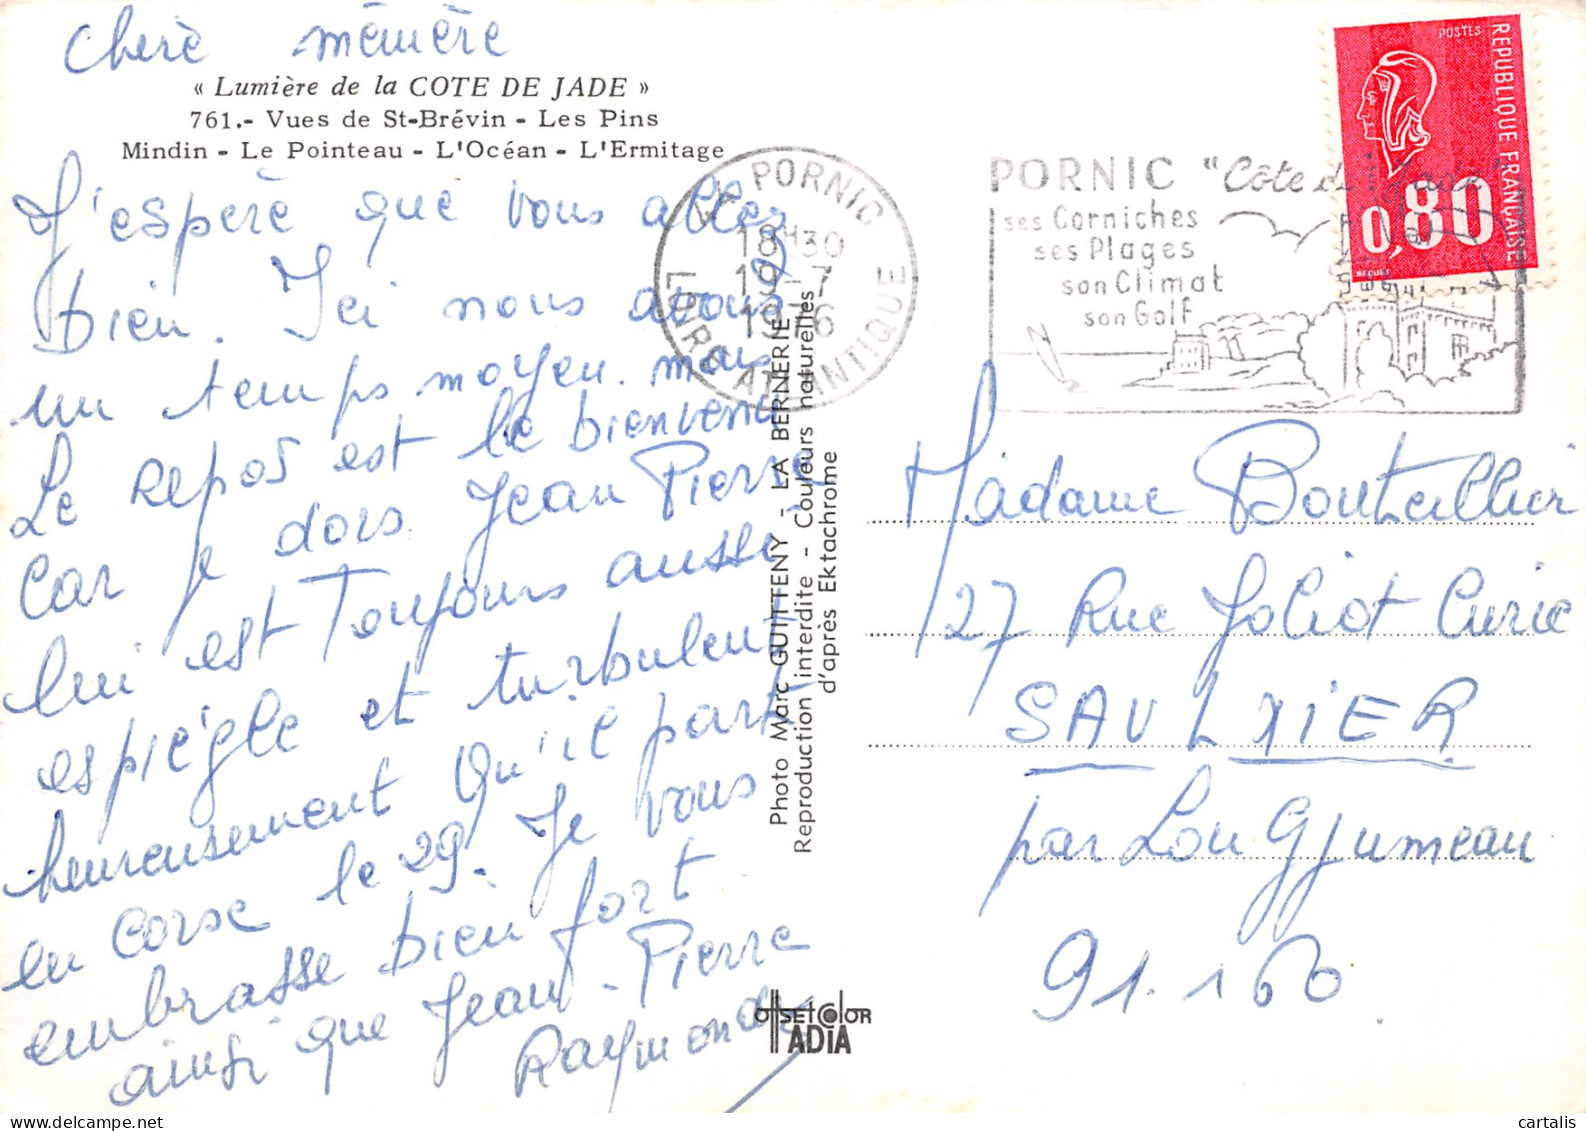 Cherè mémère
« Lumière de la COTE DE JADE »
761.- Vues de St-Brévin - Les Pins
Mindin - Le Pointeau - L'Océan - L'Ermitage
J'espère que vous allez
bien. Ici nous avons
un temps moyen. mais
Le repos est le bienvenu
Car je dors. Jean Pierre
lui est Toujours aussi
espiègle et turbulent
heureusement Qu'il part
en Corse le 29. Je vous
embrasse bien fort
ainsi que Jean-Pierre
Raymonde
Photo Marc GUITTENY - LA BERNERIE
Reproduction interdite - Couleurs naturelles
d'après Ektachrome
OFFSET COLOR
ADIA
44 PORNIC
18H30
19-7
1976
LOIRE ATLANTIQUE
PORNIC "Côte de Jade"
ses Corniches
ses Plages
son Climat
son Golf
POSTES
REPUBLIQUE FRANCAISE
0,80
BEQUET
Madame Bouteillier
27 Rue Joliot Curie
SAULXIER
par Longjumeau
91.160
cartalis